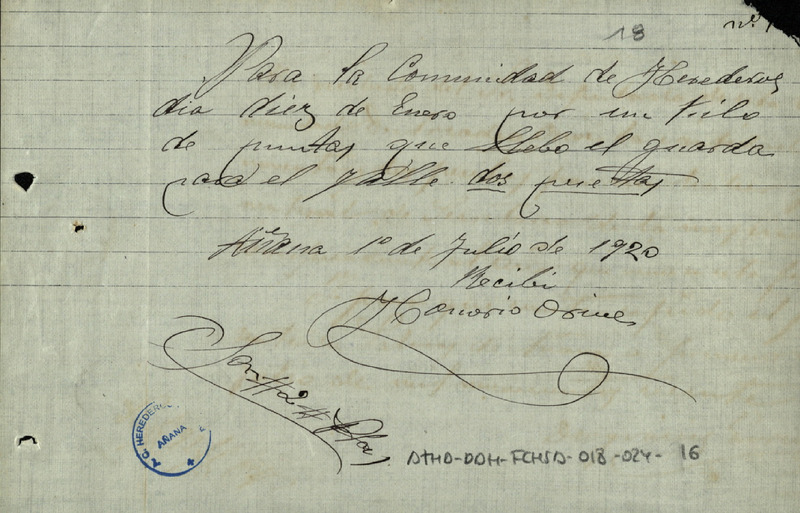 18
nº 1
Para la Comunidad de Herederos
dia diez de Enero por un kilo
de puntas que Llebo el guarda
para el Valle dos puestas
Añana 1º de Julio de 1920
Recibi
Honorio
Son # 2 # Ptas
C. HEREDEROS
AÑANA
ATHA-DAH-FCHSA-018-024-16